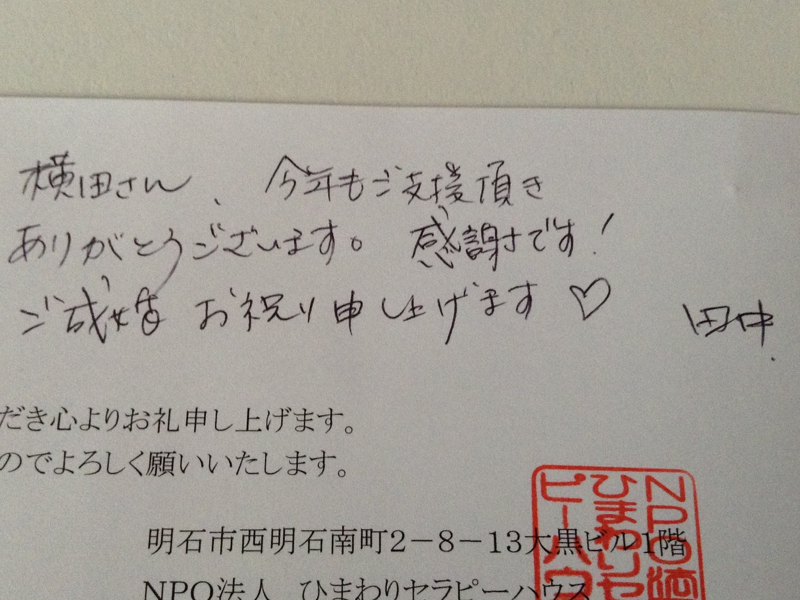 横田さん、今年もご支援頂き
ありがとうございます。感謝です!
ご成婚お祝い申し上げます♡ 田中.
だき心よりお礼申し上げます。
のでよろしく願いいたします。
明石市西明石南町2-8-13大黒ビル1階
NPO法人 ひまわりセラピーハウス
NPO法
ひまわりセ
ピーハウ